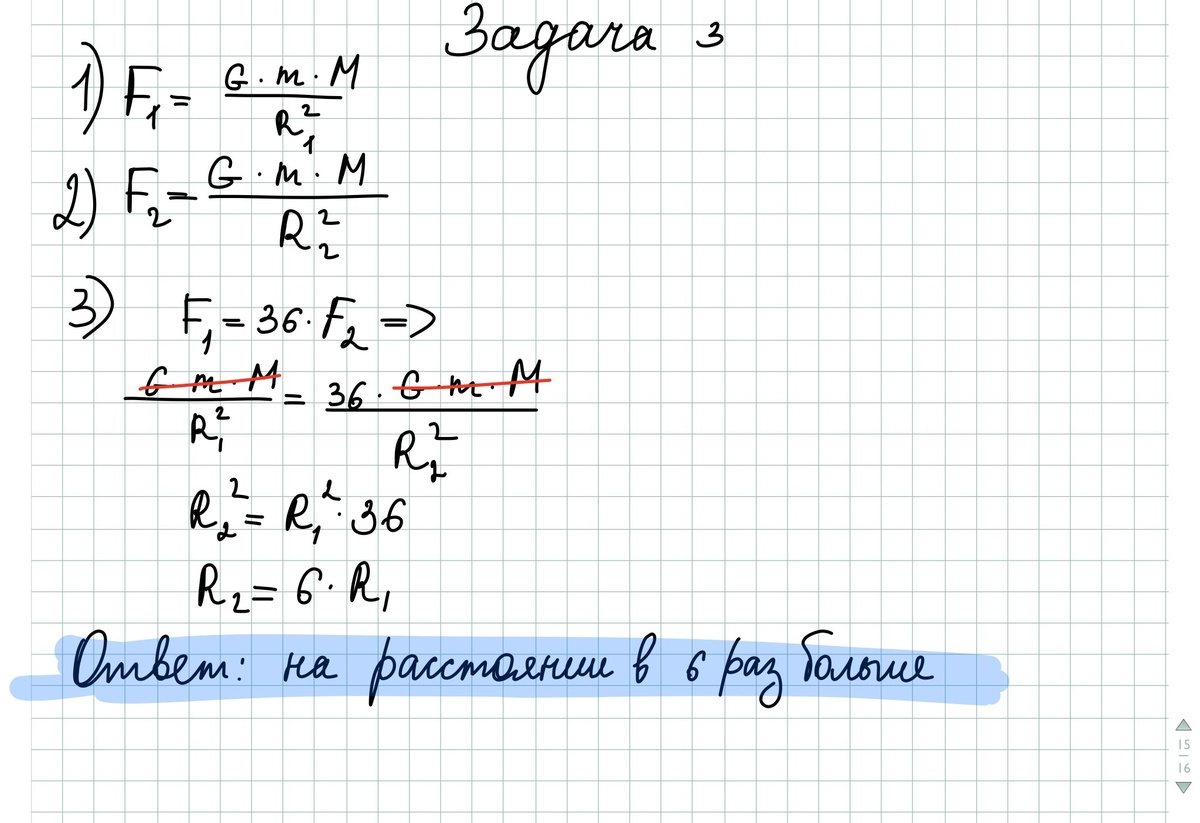 Задача 3
1) F₁ = G · m · M / R₁²
2) F₂ = G · m · M / R₂²
3) F₁ = 36 · F₂ =>
G · m · M / R₁² = 36 · G · m · M / R₂²
R₂² = R₁² · 36
R₂ = 6 · R₁
Ответ: на расстоянии в 6 раз больше
15
16